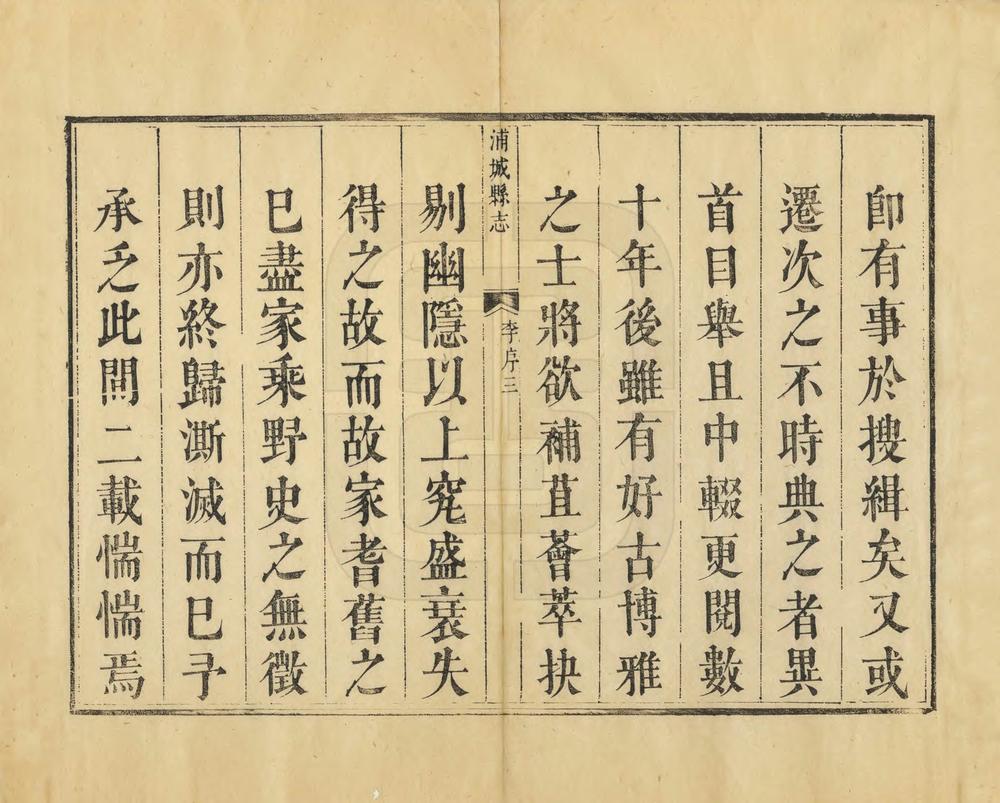 卽有事於搜緝矣又或
遷次之不時典之者異
首目舉且中輟更閱數
十年後雖有好古博雅
之士將欲補苴薈萃抉
浦城縣志
李序三
剔幽隱以上究盛衰失
得之故而故家耆舊之
已盡家乘野史之無徵
則亦終歸澌滅而已予
承乏此閒二載惴惴焉